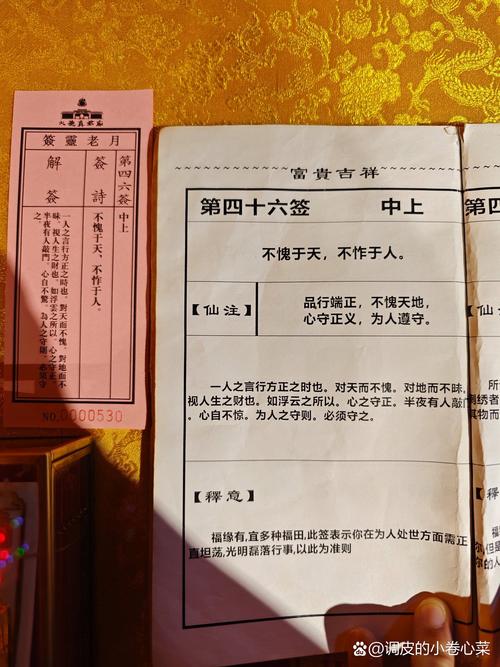 月老靈簽
第四六簽 中上
簽詩 不愧于天、不怍于人。
解簽
一人之言行方正之時也。對天而不愧。對地而不
昧。視人生之財也。如浮雲之所以。心之守正。
半夜有人敲門。心自不驚。為人之守則。必須守
之。
NO.0000530
富貴吉祥
第四十六签 中上
不愧于天，不怍于人。
【仙注】
品行端正，不愧天地，
心守正义，为人遵守。
一人之言行方正之时也。对天而不愧。对地而不昧。
视人生之财也。如浮云之所以。心之守正。半夜有人敲门
。心自不惊。为人之守则。必须守之。
【釋意】
福缘有,宜多种福田,此签表示你在为人处世方面需正
直坦荡,光明磊落行事,以此为准则
第四
所
绣者
其物而
,但是
的人
百家号/调皮的小卷心菜